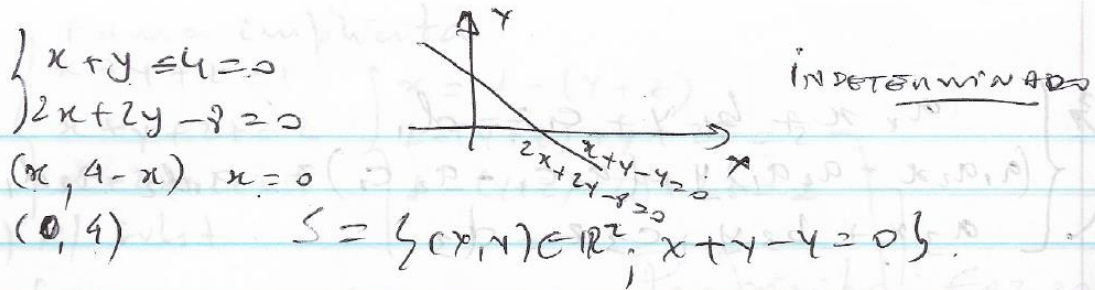 { x + y - 4 = 0
2x + 2y - 8 = 0
(x, 4 - x) x = 0
(0, 4)
Y
X
x + y - 4 = 0
2x + 2y - 8 = 0
INDETERMINADO
S = {(x, y) ∈ ℝ²; x + y - 4 = 0}.